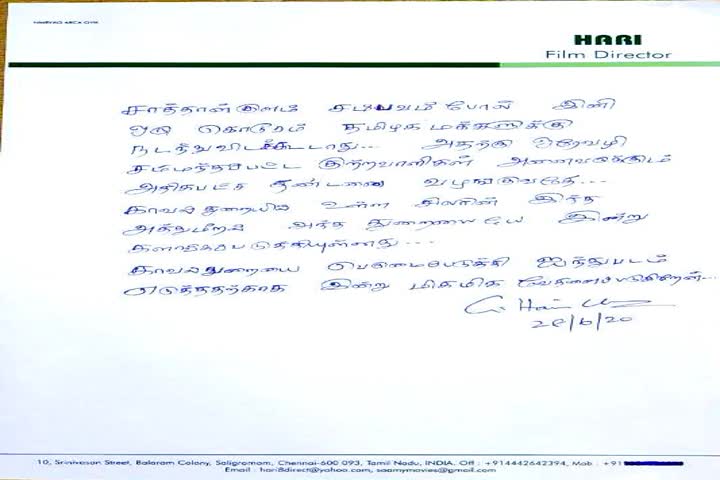 HARI
Film Director
சாத்தான்குளம் சம்பவம் போல் இனி
ஒரு கொடூரம் தமிழக மக்களுக்கு
நடந்துவிடக்கூடாது... அதற்கு ஒரேவழி
சம்மந்தப்பட்ட குற்றவாளிகள் அனைவருக்கும்
அதிகபட்ச தண்டனை வழங்குவதே...
காவல்துறையில் உள்ள சிலரின் இந்த
அத்துமீறல் அந்த துறையையே இன்று
களங்கப்படுத்தியுள்ளது...
காவல்துறையை பெருமைபடுத்தி ஐந்துபடம்
எடுத்ததற்காக இன்று மிகமிக வேதனைப்படுகிறேன்...
28/6/20
10, Srinivasan Street, Balaram Colony, Saligramam, Chennai-600 093, Tamil Nadu, INDIA. Off : +914442642394, Mob : +91
Email : hari8direct@yahoo.com, saamymovies@gmail.com